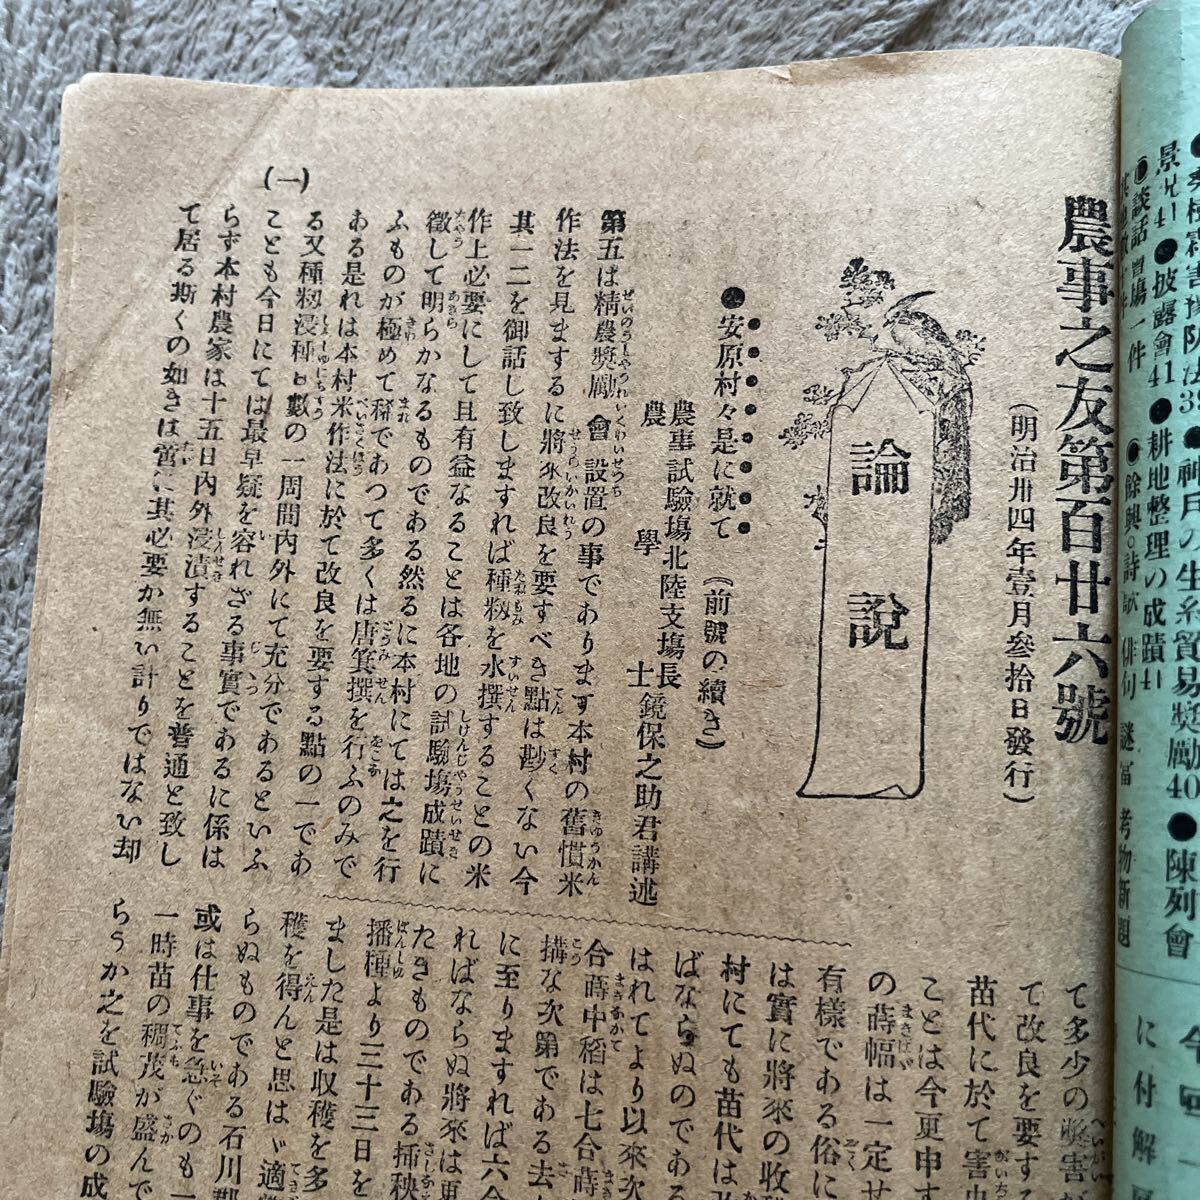 農事之友第百廿六號
(明治卅四年壹月參拾日發行)
論說
●安原村々是に就て (前號の續き)
農事試驗塲北陸支塲長
農學士
鏡保之助君講述
第五は精農奬勵會設置の事であります本村の舊慣米
作法を見まするに將來改良を要すべき點は尠くない今
其一二を御話し致しますれば種籾を水撰することの米
作上必要にして且有益なることは各地の試驗塲成蹟に
徵して明らかなるものである然るに本村にては之を行
ふものが極めて稀であつて多くは唐箕撰を行ふのみで
ある是れは本村米作法に於て改良を要する點の一であ
る又種籾浸種日數の一周間内外にて充分であるといふ
ことも今日にては最早疑を容れざる事實であるに係は
らず本村農家は十五日内外浸漬することを普通と致し
て居る斯くの如きは啻に其必要か無い計りではない却
(一)
て多少の弊害
て改良を要する
苗代に於て害虫
ことは今更申す
の蒔幅は一定せ
有樣である俗に
は實に將來の收
村にても苗代は
ばならぬのである
はれてより以來次
合蒔中稻は七合蒔
搆な次第である去
に至りますれば六合
ればならぬ將來は更
たきものである挿秧
播種より三十三日を
ました是は収穫を多
穫を得んと思はゞ適
らぬものである石川郡
或は仕事を急ぐのも一
一時苗の稠茂が盛んで
らうか之を試驗塲の成
景況41 ●披露會41 ●耕地整理の成蹟41
●神戸の生糸貿易奬勵40 ●陳列會
◉談話會塲一件 ◉餘興○詩
俳句
考物新題
に付解